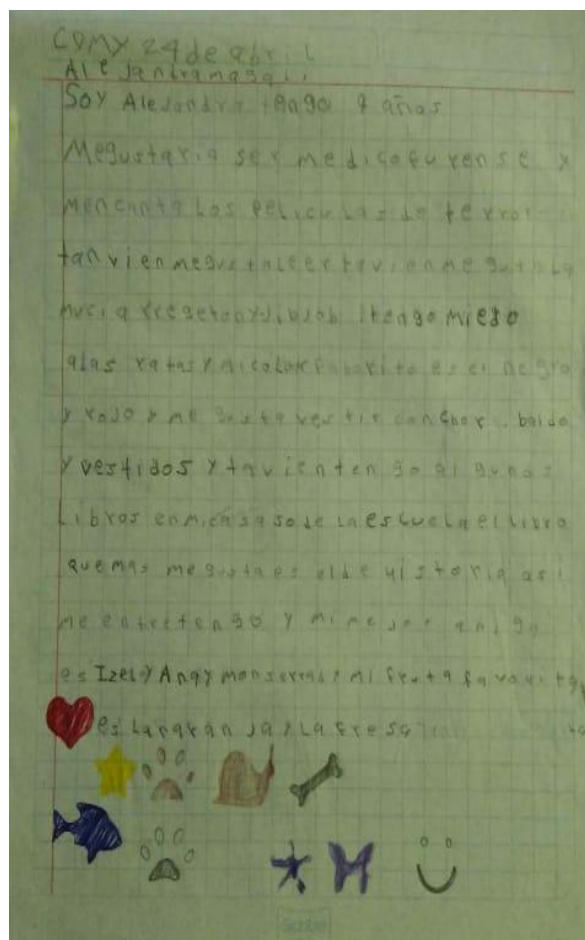 CDMX 24 de abril
Alejandra magali
Soy Alejandra tengo 9 años
Megustaria ser medico furense y
mencanta Los peliculas de terror
tanvien megusta leer tavien me gusta La
mucia rregeton y tengo miedo
alas ratas y micolor faborito es el negro
y rojo y me gusta vestir con
y vestidos y tavien tengo algunos
Libros enmicasa sode la escuela el Libro
que mas me gusta es elde yistoria asi
me entretengo y mi mejor amigo
es Izel y Ana y monserrat mi fruta favorita
es Lanaranja y La fresa
Scribe